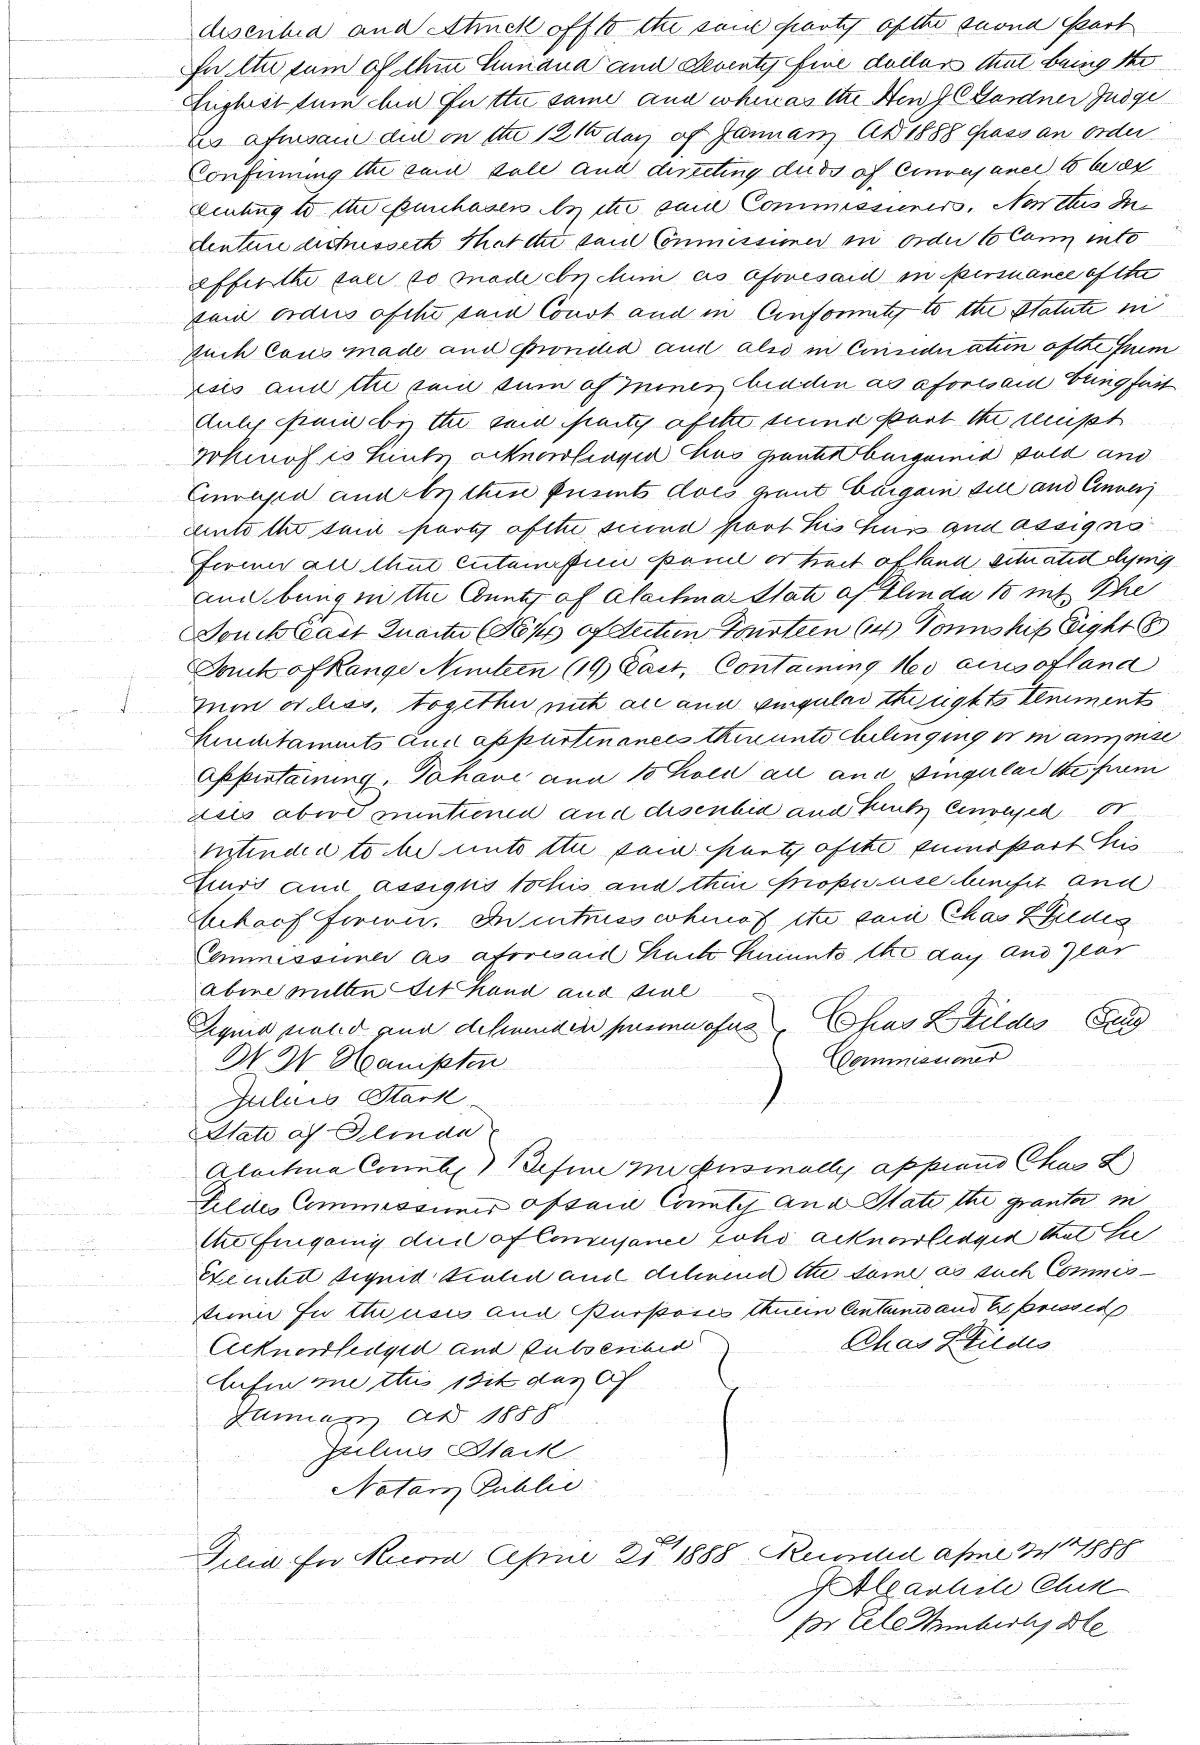 described and struck off to the said party of the second part
for the sum of three hundred and seventy five dollars that being the
highest sum bid for the same and whereas the Hon J C Gardner Judge
as aforesaid did on the 12th day of January AD 1888 pass an order
Confirming the said sale and directing deeds of Conveyance to be ex
ecuting to the purchasers by the said Commissioners. Now this In-
denture witnesseth that the said Commissioner in order to Carry into
effect the sale so made by him as aforesaid in persuance of the
said orders of the said Court and in Conformity to the Statute in
such Cases made and provided and also in Consideration of the prem
ises and the said sum of money bidden as aforesaid being first
duly paid by the said party of the second part the receipt
whereof is hereby acknowledged has granted bargained sold and
Conveyed and by these presents does grant bargain sell and Convey
unto the said party of the second part his heirs and assigns
forever all that certain piece parcel or tract of land situated lying
and being in the County of Alachua State of Florida to wit The
South East Quarter (SE 1/4) of Section Fourteen (14) Township Eight (8)
South of Range Nineteen (19) East, Containing 160 acres of land
more or less, together with all and singular the rights tenements
hereditaments and appurtenances thereunto belonging or in any wise
appertaining. To have and to hold all and singular the prem
ises above mentioned and described and hereby Conveyed or
intended to be unto the said party of the second part his
heirs and assigns to his and their proper use benefit and
behoof forever. In witness whereof the said Chas L Fildes
Commissioner as aforesaid hath hereunto the day and year
above written set hand and seal
Signed sealed and delivered in presence of us Chas L Fildes Seal
W W Hampton Commissioner
Julius Stark
State of Florida
Alachua County Before me personally appeared Chas L
Fildes Commissioner of said County and State the grantor in
the foregoing deed of Conveyance who acknowledged that he
Executed signed sealed and delivered the same as such Commis-
sioner for the uses and purposes therein Contained and Expressed
Acknowledged and subscribed Chas L Fildes
before me this 13th day of
January AD 1888
Julius Stark
Notary Public
Filed for Record April 21st 1888 Recorded April 1888
J A Carlisle Clerk
pr Wimberly DC